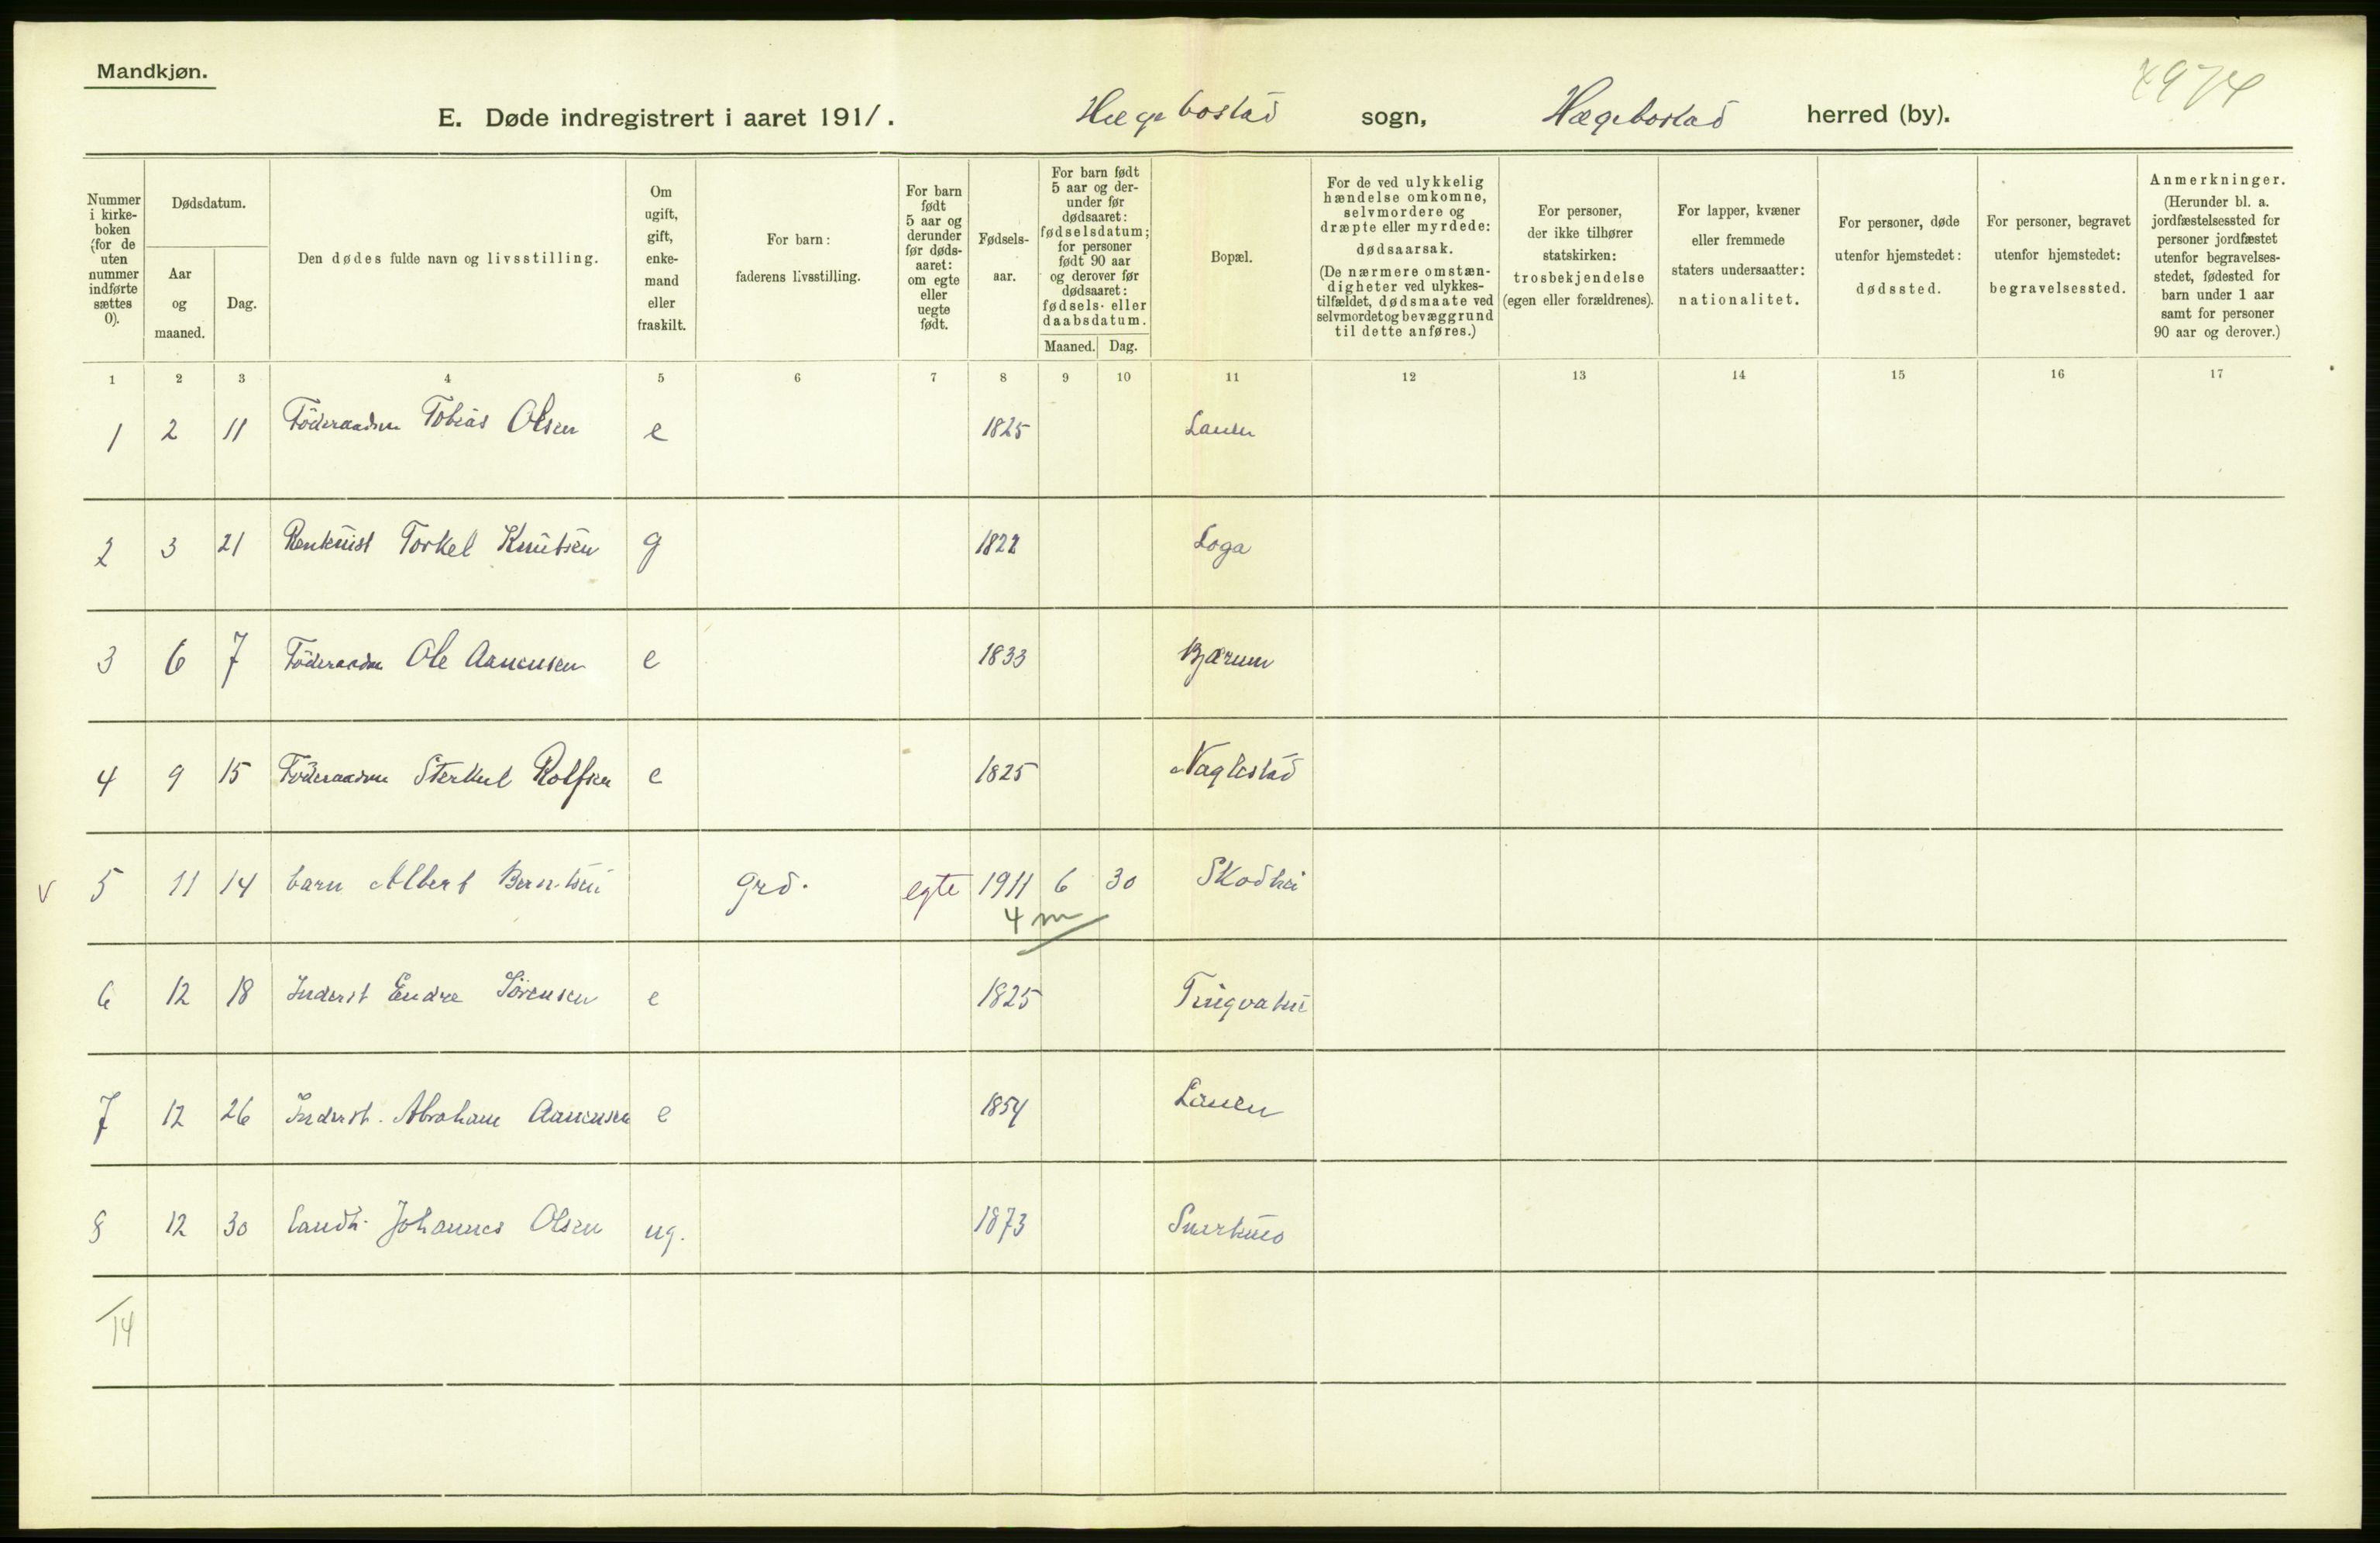 Mandkjøn.
4974
E. Døde indregistrert i aaret 1911. Hægebostad sogn, Hægebostad herred (by).
Nummer i kirke- boken (for de uten nummer indførte sættes 0).
Dødsdatum.
Aar og maaned.
Dag.
Den dødes fulde navn og livsstilling.
Om ugift, gift, enke- mand eller fraskilt.
For barn: faderens livsstilling.
For barn født 5 aar og derunder før døds- aaret: om egte eller uegte født.
Fødsels- aar.
For barn født 5 aar og der- under før dødsaaret: fødselsdatum; for personer født 90 aar og derover før dødsaaret: fødsels- eller daabsdatum.
Maaned. Dag.
Bopæl.
For de ved ulykkelig hændelse omkomne, selvmordere og dræpte eller myrdede: dødsaarsak. (De nærmere omstæn- digheter ved ulykkes- tilfældet, dødsmaate ved selvmordet og bevæggrund til dette anføres.)
For personer, der ikke tilhører statskirken: trosbekjendelse (egen eller forældrenes).
For lapper, kvæner eller fremmede staters undersaatter: nationalitet.
For personer, døde utenfor hjemstedet: dødssted.
For personer, begravet utenfor hjemstedet: begravelsessted.
Anmerkninger. (Herunder bl. a. jordfæstelsessted for personer jordfæstet utenfor begravelses- stedet, fødested for barn under 1 aar samt for personer 90 aar og derover.)
1 2 3 4 5 6 7 8 9 10 11 12 13 14 15 16 17
1 2 11 Föderaadsm Tobias Olsen e 1825 Lauen
2 3 21 Torkel Knutsen g 1822 Loga
3 6 7 Föderaadm Ole Aanensen e 1833 Bjærum
4 9 15 Föderaadsm Sterkel Rolfsen e 1825 Naglestad
v 5 11 14 barn Albert Berntsen grd. egte 1911 6 30 Skodhei
4 m
6 12 18 Inderst Endre Sörensen e 1825 Tingvatne
7 12 26 Inderst. Abraham Aanensen e 1854 Lauen
8 12 30 Landh. Johannes Olsen ug. 1873
14